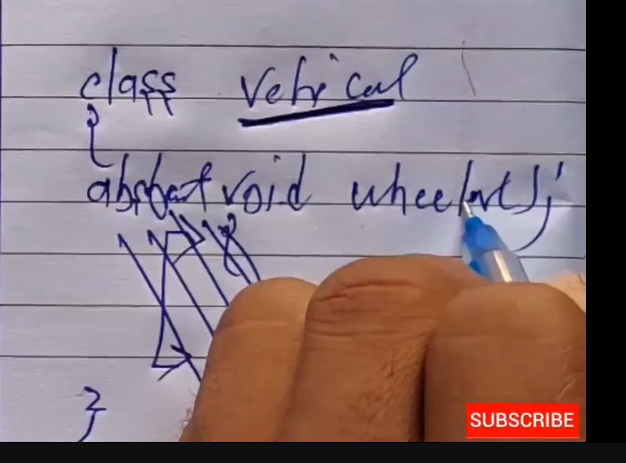 class Vehical
{
abstract void wheel();
}
SUBSCRIBE